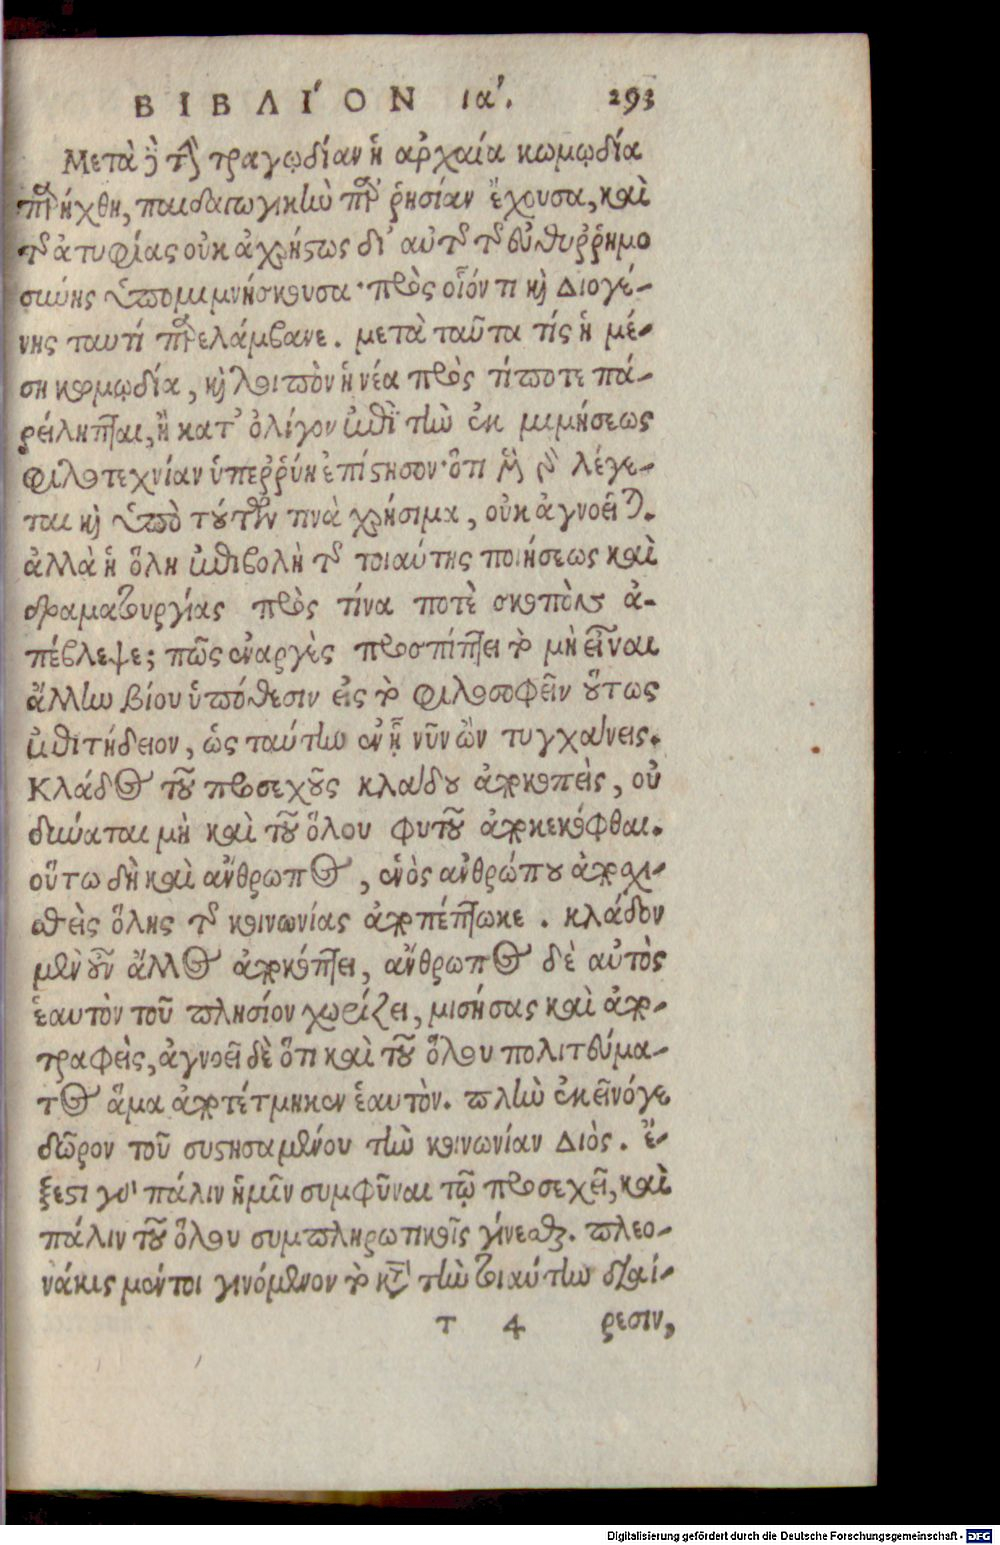 ΒΙΒΛΙ´ΟΝ ια´. 293
Μετὰ δὲ τὴν τραγῳδίαν ἡ ἀρχαία κωμῳδία
παρήχθη, παιδαγωγικὴν παρρησίαν ἔχουσα, καὶ
τῆς ἀτυφίας οὐκ ἀχρήστως δι' αὐτῆς τῆς εὐθυρρημο
σύνης ὑπομιμνήσκουσα· πρὸς οἷόν τι καὶ Διογέ-
νης ταυτὶ παρελάμβανε. μετὰ ταῦτα τίς ἡ μέ-
ση κωμῳδία, καὶ λοιπὸν ἡ νέα πρὸς τί ποτε πά-
ρείληπται, ἣ κατ' ὀλίγον ἐπὶ τὴν ἐκ μιμήσεως
φιλοτεχνίαν ὑπερρύη ἐπίστησον· ὅτι μὲν γὰρ λέγε-
ται καὶ ὑπὸ τούτων τινὰ χρήσιμα, οὐκ ἀγνοεῖται.
ἀλλὰ ἡ ὅλη ἐπιβολὴ τῆς τοιαύτης ποιήσεως καὶ
δραματουργίας πρὸς τίνα ποτὲ σκοπὸν ἀ-
πέβλεψε; πῶς ἐναργὲς προσπίπτει τὸ μὴ εἶναι
ἄλλην βίου ὑπόθεσιν εἰς τὸ φιλοσοφεῖν οὕτως
ἐπιτήδειον, ὡς ταύτην ἐν ᾗ νῦν ὢν τυγχάνεις.
Κλάδος τοῦ προσεχοῦς κλάδου ἀποκοπεὶς, οὐ
δύναται μὴ καὶ τοῦ ὅλου φυτοῦ ἀποκεκόφθαι.
οὕτω δὴ καὶ ἄνθρωπος, ἑνὸς ἀνθρώπου ἀποχι-
σθεὶς ὅλης τῆς κοινωνίας ἀποπέπτωκε. κλάδον
μὲν οὖν ἄλλος ἀποκόπτει, ἄνθρωπος δὲ αὐτὸς
ἑαυτὸν τοῦ πλησίον χωρίζει, μισήσας καὶ ἀπο-
τραφεὶς, ἀγνοεῖ δὲ ὅτι καὶ τοῦ ὅλου πολιτεύμα-
τος ἅμα ἀποτέτμηκεν ἑαυτὸν. πλὴν ἐκεῖνόγε
δῶρον τοῦ συστησαμένου τὴν κοινωνίαν Διὸς. ἔ-
ξεστι γὰρ πάλιν ἡμῖν συμφῦναι τῷ προσεχεῖ, καὶ
πάλιν τοῦ ὅλου συμπληρωτικοῖς γίνεσθαι. πλεο-
νάκις μέντοι γινόμενον τὸ κατὰ τὴν τοιαύτην διαί-
Τ 4 ρεσιν,
Digitalisierung gefördert durch die Deutsche Forschungsgemeinschaft - DFG